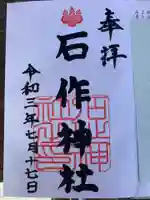 奉拝
石作神社
令和三年七月十七日